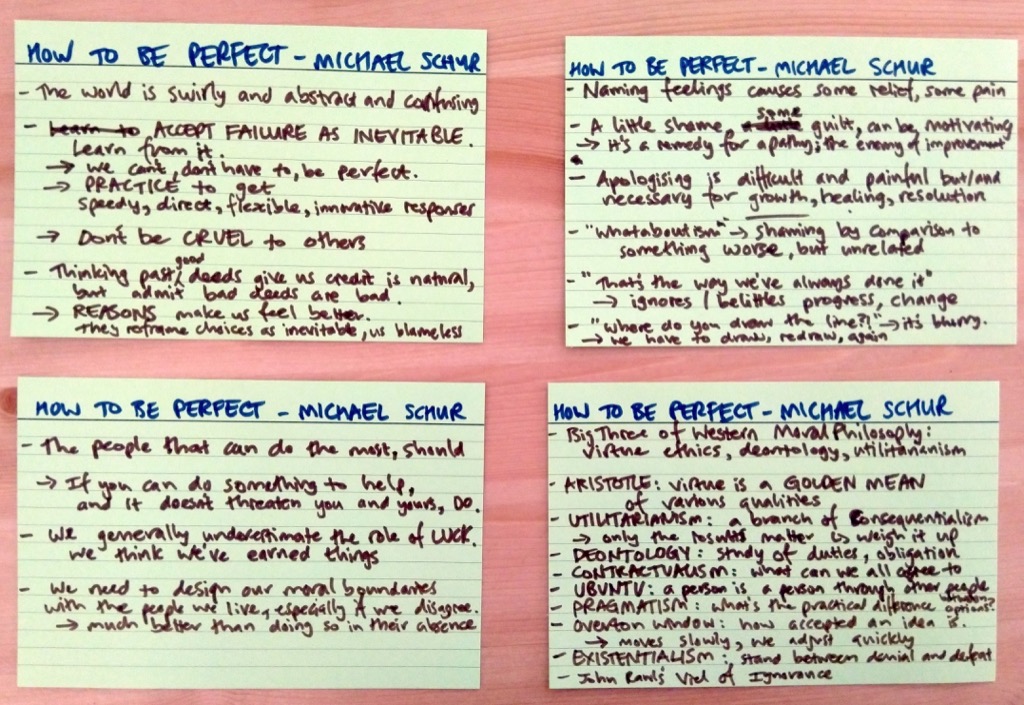 HOW TO BE PERFECT - MICHAEL SCHUR
- The world is swirly and abstract and confusing
- Learn to ACCEPT FAILURE AS INEVITABLE.
Learn from it.
→ we can't, don't have to, be perfect.
→ PRACTICE to get
speedy, direct, flexible, innovative responses
→ Don't be CRUEL to others
- Thinking past good deeds give us credit is natural,
but admit bad deeds are bad.
→ REASONS make us feel better.
they reframe choices as inevitable, us blameless
HOW TO BE PERFECT - MICHAEL SCHUR
- Naming feelings causes some relief, some pain
- A little shame, some guilt, can be motivating
→ It's a remedy for apathy; the enemy of improvement
- Apologising is difficult and painful but/and
necessary for growth, healing, resolution
- "Whataboutism" → shaming by comparison to
something worse, but unrelated
- "That's the way we've always done it"
→ ignores / belittles progress, change
- "Where do you draw the line?!" → it's blurry.
→ we have to draw, redraw, again
HOW TO BE PERFECT - MICHAEL SCHUR
- The people that can do the most, should
→ If you can do something to help,
and it doesn't threaten you and yours, DO.
- We generally underestimate the role of LUCK.
we think we've earned things
- We need to design our moral boundaries
with the people we live, especially if we disagree.
→ much better than doing so in their absence
HOW TO BE PERFECT - MICHAEL SCHUR
- Big Three of Western Moral Philosophy:
virtue ethics, deontology, utilitarianism
- ARISTOTLE: virtue is a GOLDEN MEAN
of various qualities
- UTILITARIANISM: a branch of Consequentialism
→ only the results matter ↳ weigh it up
- DEONTOLOGY: study of duties, obligation
- CONTRACTUALISM: what can we all agree to
- UBUNTU: a person is a person through other people
- PRAGMATISM: what's the practical difference between options?
- Overton window: how accepted an idea is.
→ moves slowly, we adjust quickly
- EXISTENTIALISM: stand between denial and defeat
- John Rawls' Viel of Ignorance